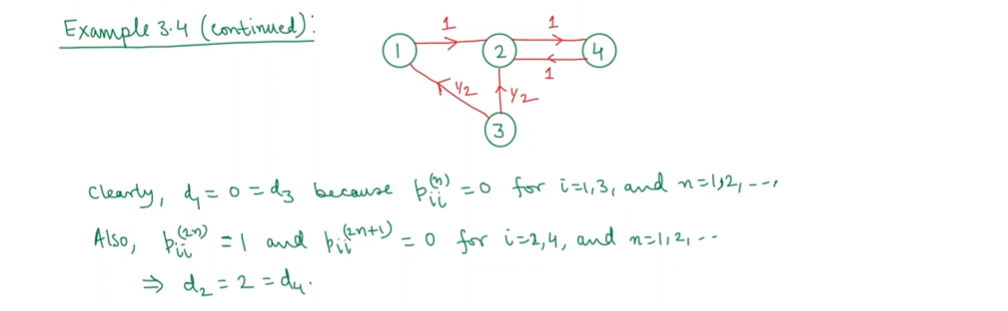 Example 3.4 (continued):
1 1
1 2 4
1
1/2 1/2
3
Clearly, d₁ = 0 = d₃ because p_{ii}^{(n)} = 0 for i=1,3, and n=1,2,---,
Also, p_{ii}^{(2n)} = 1 and p_{ii}^{(2n+1)} = 0 for i=2,4, and n=1,2,--
⇒ d₂ = 2 = d₄.